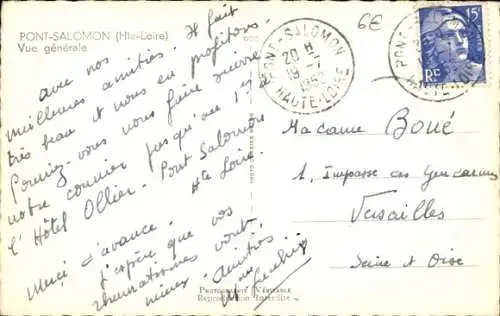 PONT-SALOMON (Hte-Loire)
Vue générale
avec nos
meilleures amitiés. Il fait
très beau et nous en profitons.
Pourriez-vous nous faire suivre
notre courrier jusqu'au 17 à
l'Hôtel Ollier. Pont Salomon
Hte Loire
Merci d'avance.
J'espère que vos
rhumatismes vont
mieux. Amitiés
PONT-SALOMON
20 H
1952
HAUTE-LOIRE
6€
15F
RF
Madame Boué
1, Impasse des Gendarmes
Versailles
Seine et Oise
PHOTOGRAPHIE VÉRITABLE
Reproduction Interdite